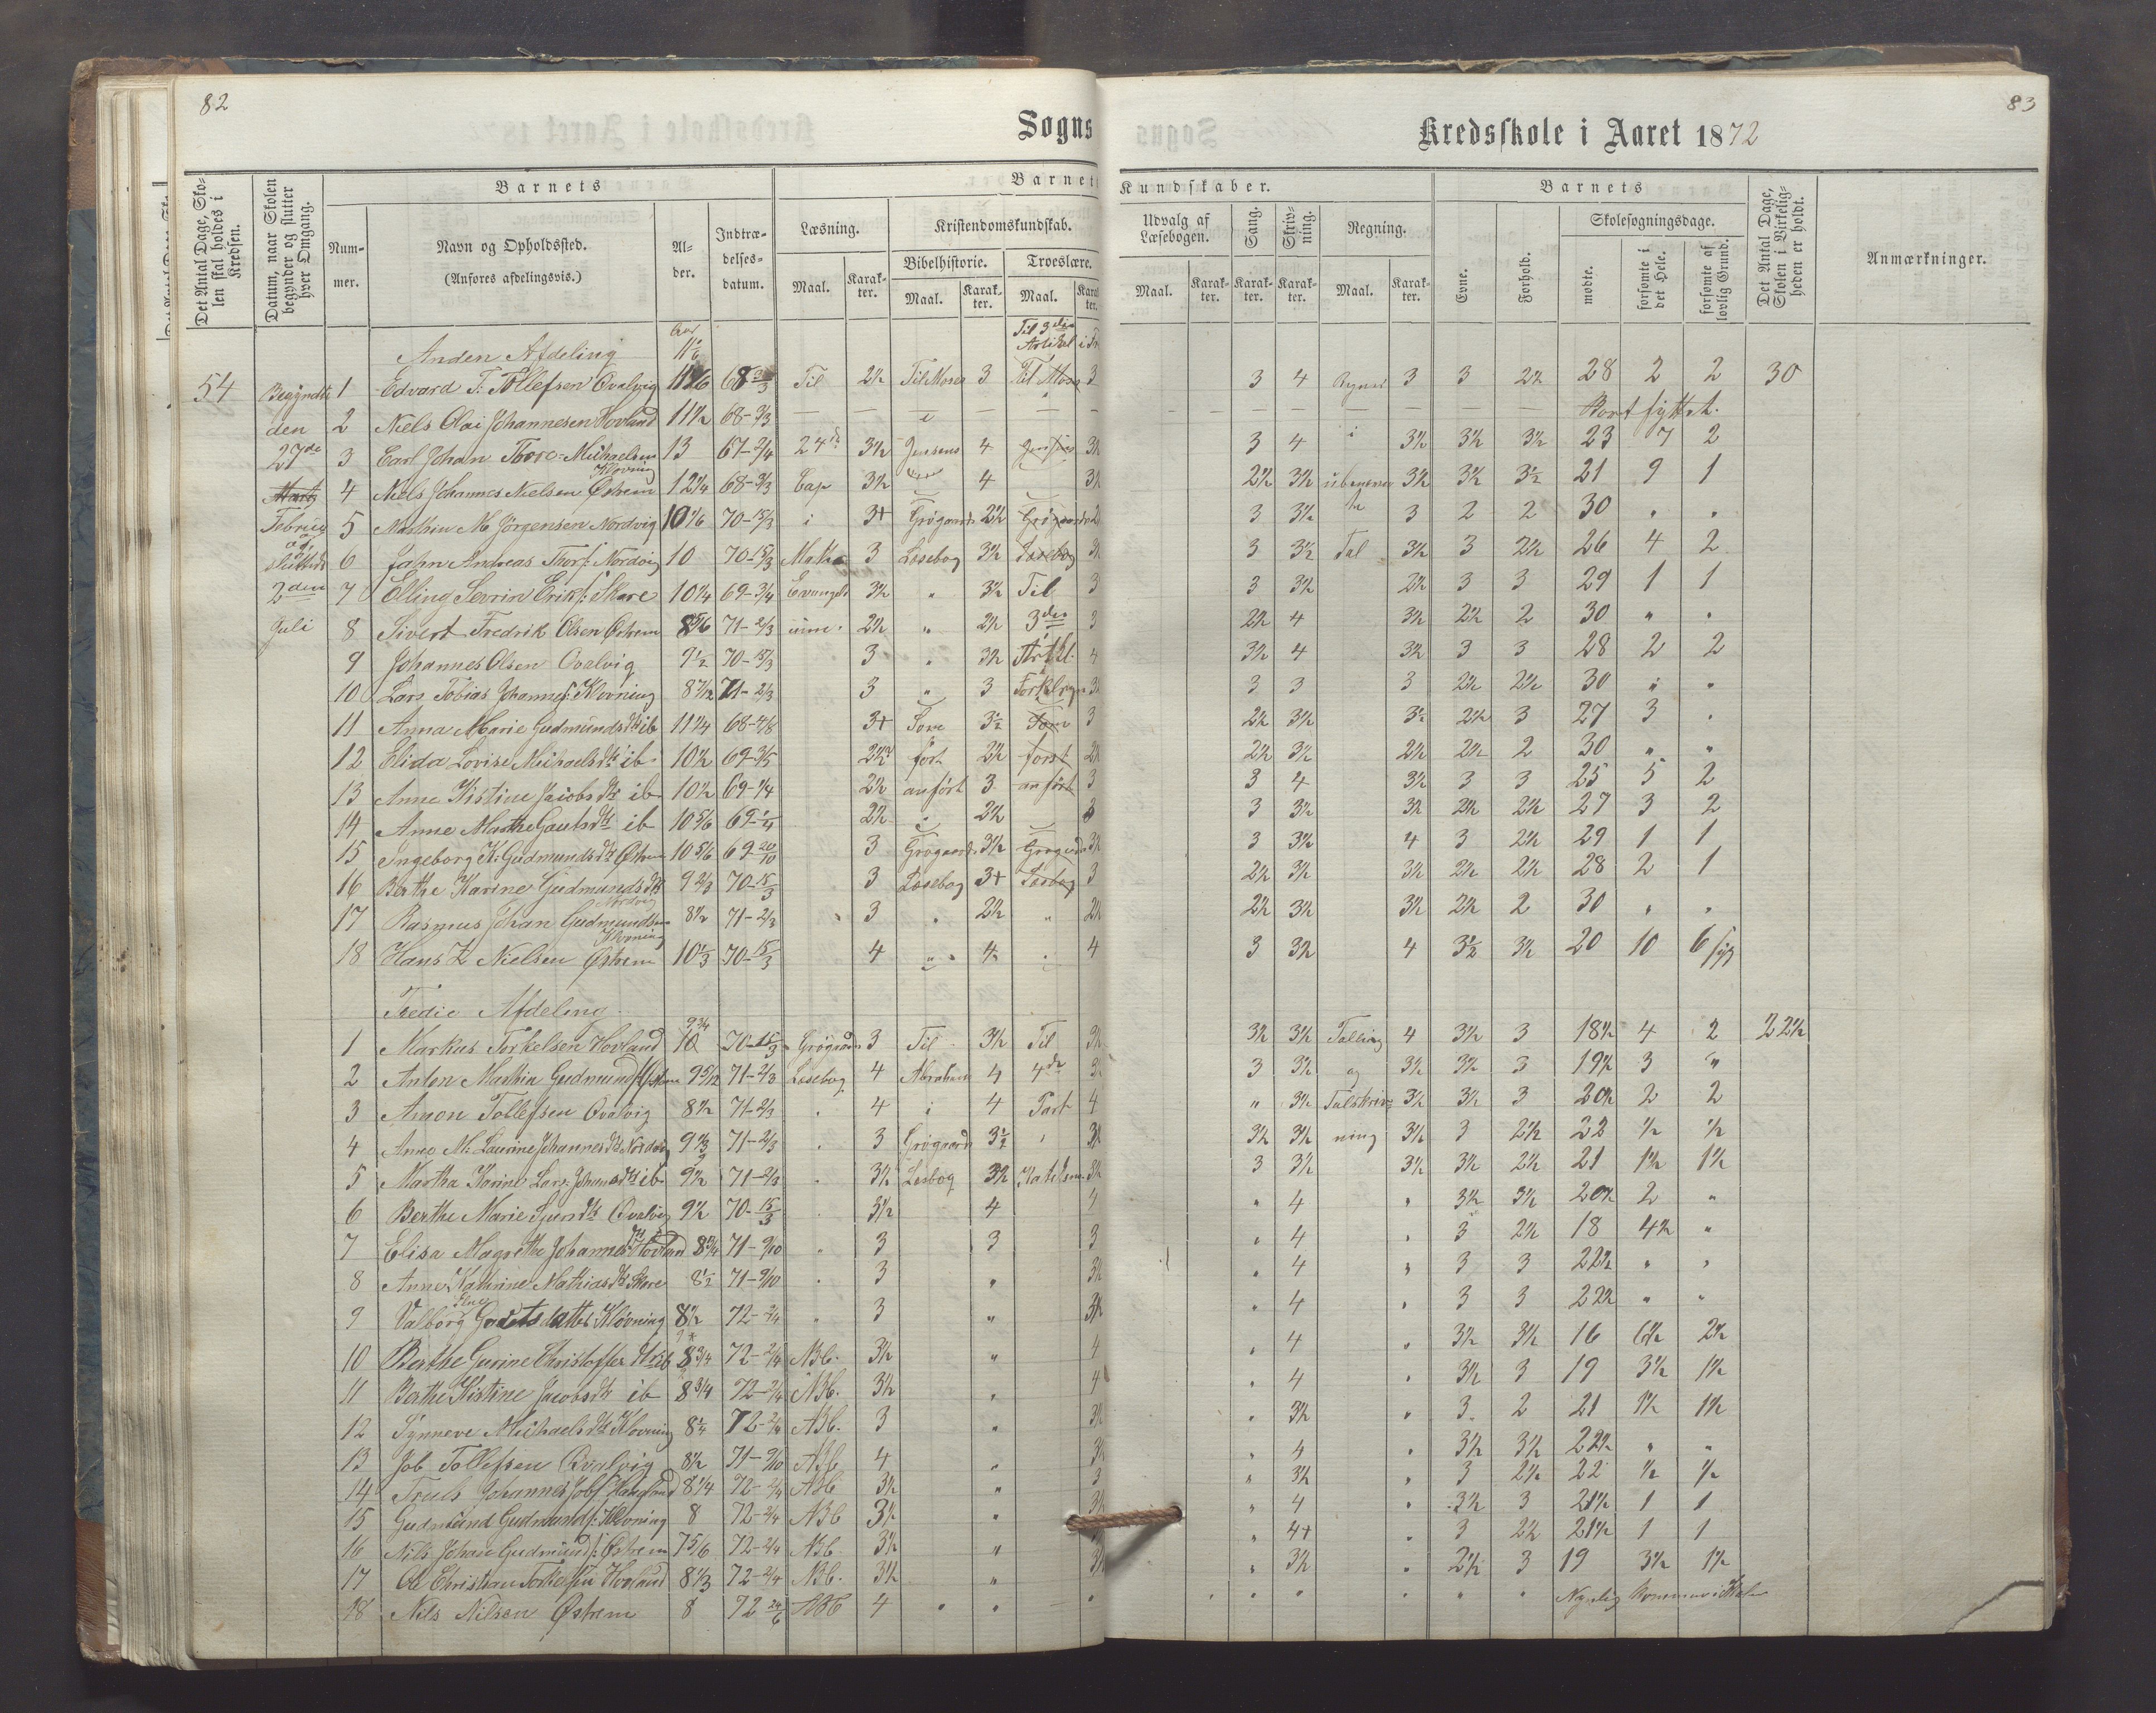 82
Sogns
Det Antal Dage, Skolen skal holdes i Kredsen.
Datum, naar Skolen begynder og slutter hver Omgang.
Barnets
Nummer.
Navn og Opholdssted.
(Anføres afdelingsvis.)
Alder.
Indtrædelsesdatum.
Barnets
Læsning.
Maal.
Karakter.
Kristendomskundskab.
Bibelhistorie.
Maal.
Karakter.
Troeslære.
Maal.
Karakter.
Anden Afdeling
54 Begyndte 1 Edvard T. Tollefsen Qvalvig 68 Til 2½ Til Moses 3
den 2 Niels Olai Johannesen Hovland 11½ 68-
27de 3 Carl Johan Thore-Michaelsen Klovning 13 67- 3½ Jensens 4
4 Niels Johannes Nielsen Østrem 12¼ 68- Cap 3½ 4
5 Mathias M Jörgensen Nordvig 10 70-15/3 i 3+ Grögaards 2½
6 Jahn Andreas Thors: Nordvig 10 70-15/3 3 Læsebog 3½
2den 7 Elling Sevrin Eriks: Skare 10¼ 69- 3½ " 3½ Til 3
Juli 8 Sivert Fredrik Olsen Østrem 71-2/3 2½ " 2½ 3die 3
9 Johannes Olsen Qvalvig 9½ 70-15/3 3 " 3½ Artikl. 4
10 Lars Tobias Johannes: Klovning 71-2/3 3 " 3
11 Anna Marie Gudmundsdtr ib 11¼ 68- 3+ Som 3½ Som 3
12 Elida Lovise Michaelsdtr ib 10½ 69- før 2½
13 Anne Kistine Jacobsdtr ib 10½ 69- 2½ anført 3 anført 3
14 Anne Marthe Gautsdtr ib 10 5/6 69- 2½ 2½
15 Ingeborg K: Gudmundsdtr Østrem 10 5/6 69-20/10 3 Grögaards 3½
16 Berthe Karine Gudmundsdtr Nordvig 9 2/3 70-15/3 3 Læsebog 3+ Læsbog 3
17 Rasmus Johan Gudmundsen Klovning 8½ 71-2/3 3 " 2½ " 2½
18 Hans Z Nielsen Østrem 10 1/3 70-15/3 4 4 4
Tredie Afdeling
1 Markus Torkelsen Hovland 9¾ 70-15/3 Grögaards 3 Til 3½ Til 3½
2 Anton Mathias Gudmunds: Østrem 9 5/12 71-2/3 Læsebog 4 Abraham 4 4de
3 Amon Tollefsen Qvalvig 8½ 71-2/3 4 i 4 Part 4
4 Anne M: Laurine Johannesdtr Nordvig 71-2/3 3 Grögaards 3½ 3½
5 Martha Karine Lars: Johansdtr ib 9½ 71-2/3 3½ Læsbog 3½
6 Berthe Marie Sjursdtr Qvalvig 9½ 70-15/3 3½ 4 4
7 Elisa Magrethe Johannesdtr Hovland 8¾ 71-9/10 3 3 3
8 Anne Kathrine Mathiasdtr Skare 8½ 71-9/10 3 " 3½
9 Valborg Gautsdatter Klövning 8½ 72- 3 " 3½
10 Berthe Gurine Christoffersdtr ib 8¾ 72-2/4 ABC. 3½ " 4
11 Berthe Kistine Jacobsdtr ib 8¾ 72-2/4 ABC. 3½ " 4
12 Synneve Michaelsdtr Klovning 72-2/4 ABC. 3 " 3½
13 Job Tollefsen Qvalvig 8½ 71-9/10 ABC 4 " 3½
14 Truls Johannes Jobs: 8¼ 72-2/4 ABC 3½ " 3
15 Gudmund Gudmunds: Klovning 8 72-2/4 ABC 3½ " 3½
16 Nils Johan Gudmunds: Østrem 7 5/6 72-2/4 ABC. 3½ "
17 Ole Christian Torkelsen Hovland 8 1/3 72-2/4 ABC. 3½ " 3½
18 Nils Nilsen Østrem 8 72 24/6 ABC 4 " "
83
Kredsskole i Aaret 1872
Kundskaber.
Udvalg af Læsebogen.
Maal.
Karakter.
Sang.
Karakter.
Skrivning.
Karakter.
Regning.
Maal.
Karakter.
Barnets
Evne.
Forhold.
Skolesøgningsdage.
mødte.
forsømte i det Hele.
forsømte af lovlig Grund.
Det Antal Dage, Skolen i Virkeligheden er holdt.
Anmærkninger.
3 4 3 3 2½ 28 2 2 30
Bortflyttet.
3 4 i 3½ 3½ 3½ 23 7 2
2½ 3½ 3½ 3½ 3½ 21 9 1
3 3½ 3 2 2 30 " "
3 3½ Tal 3½ 3 2½ 26 4 2
3 3½ 2½ 3 3 29 1 1
2½ 4 3½ 2½ 2 30 " "
3½ 4 3½ 3 3 28 2 2
3 3 3 2½ 2½ 30 " "
2½ 3½ 3½ 2½ 3 27 3 "
2½ 3½ 2½ 2½ 2 30 " "
3 4 3½ 3 3 25 5 2
3 3½ 3½ 2½ 2½ 27 3 2
3 3½ 4 3 2½ 29 1 1
2½ 3½ 3½ 2½ 2½ 28 2 1
2½ 3½ 3½ 2½ 2 30 " "
3 3½ 4 3½ 3½ 20 10 6 syg
3½ 3½ Talling 4 3½ 3 18½ 4 2 22½
3 3½ og 3½ 3½ 3 19½ 3 "
" 3½ Talskriv- 3½ 3½ 3 20½ 2 2
3½ 3½ ning 3½ 3 2½ 22 ½ ½
3 3½ 3½ 3½ 2½ 21 1½ 1½
" 4 " 3½ 3½ 20½ 2 "
" 4 " 3 2½ 18 4½ "
" 4 " 3 3 22½ " "
" 4 " 3 3 22½ " "
" 4 " 3½ 3½ 16 6½ 2½
" 4 " 3½ 3 19 3½ 1½
" 3½ " 3 2 21 1½ 1½
" 4 " 3½ 3½ 22½ " "
" 3½ " 3 2½ 22 ½ ½
" 4 " 3½ 3 21½ 1 1
" 4+ " 3 2½ 21½ 1 1
" 3½ " 2½ 3 19 3½ 1½
Nylig kommen i Skolen